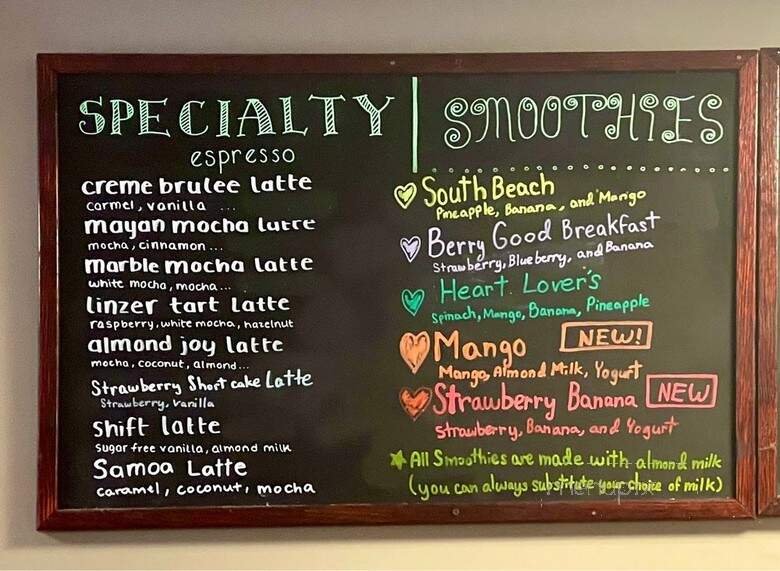 SPECIALTY
espresso
creme brulee latte
carmel, vanilla ...
mayan mocha
mocha, cinnamon ...
marble mocha latte
white mocha, mocha...
linzer tart latte
raspberry, white mocha, hazelnut
almond joy latte
mocha, coconut, almond...
Strawberry Short cake Latte
Strawberry, vanilla
shift latte
sugar free vanilla, almond milk
Samoa Latte
caramel, coconut, mocha
SMOOTHIES
South Beach
Pineapple, Banana, and Mango
Berry Good Breakfast
Strawberry, Blueberry, and Banana
Heart Lover's
Spinach, Mango, Banana, Pineapple
Mango NEW!
Mango, Almond Milk, Yogurt
Strawberry Banana NEW
Strawberry, Banana, and Yogurt
All Smoothies are made with almond milk
(you can always substitute your choice of milk)
menupix